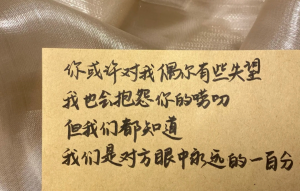 你或许对我偶尔有些失望
我也会抱怨你的唠叨
但我们都知道
我们是对方眼中永远的一百分